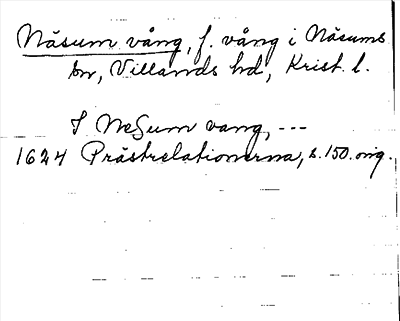 Näsum vång, f. vång i Näsums
sn, Villands hd, Krist. l.
I NeSum vang, ---
1624 Prästrelationerna, s. 150. orig.